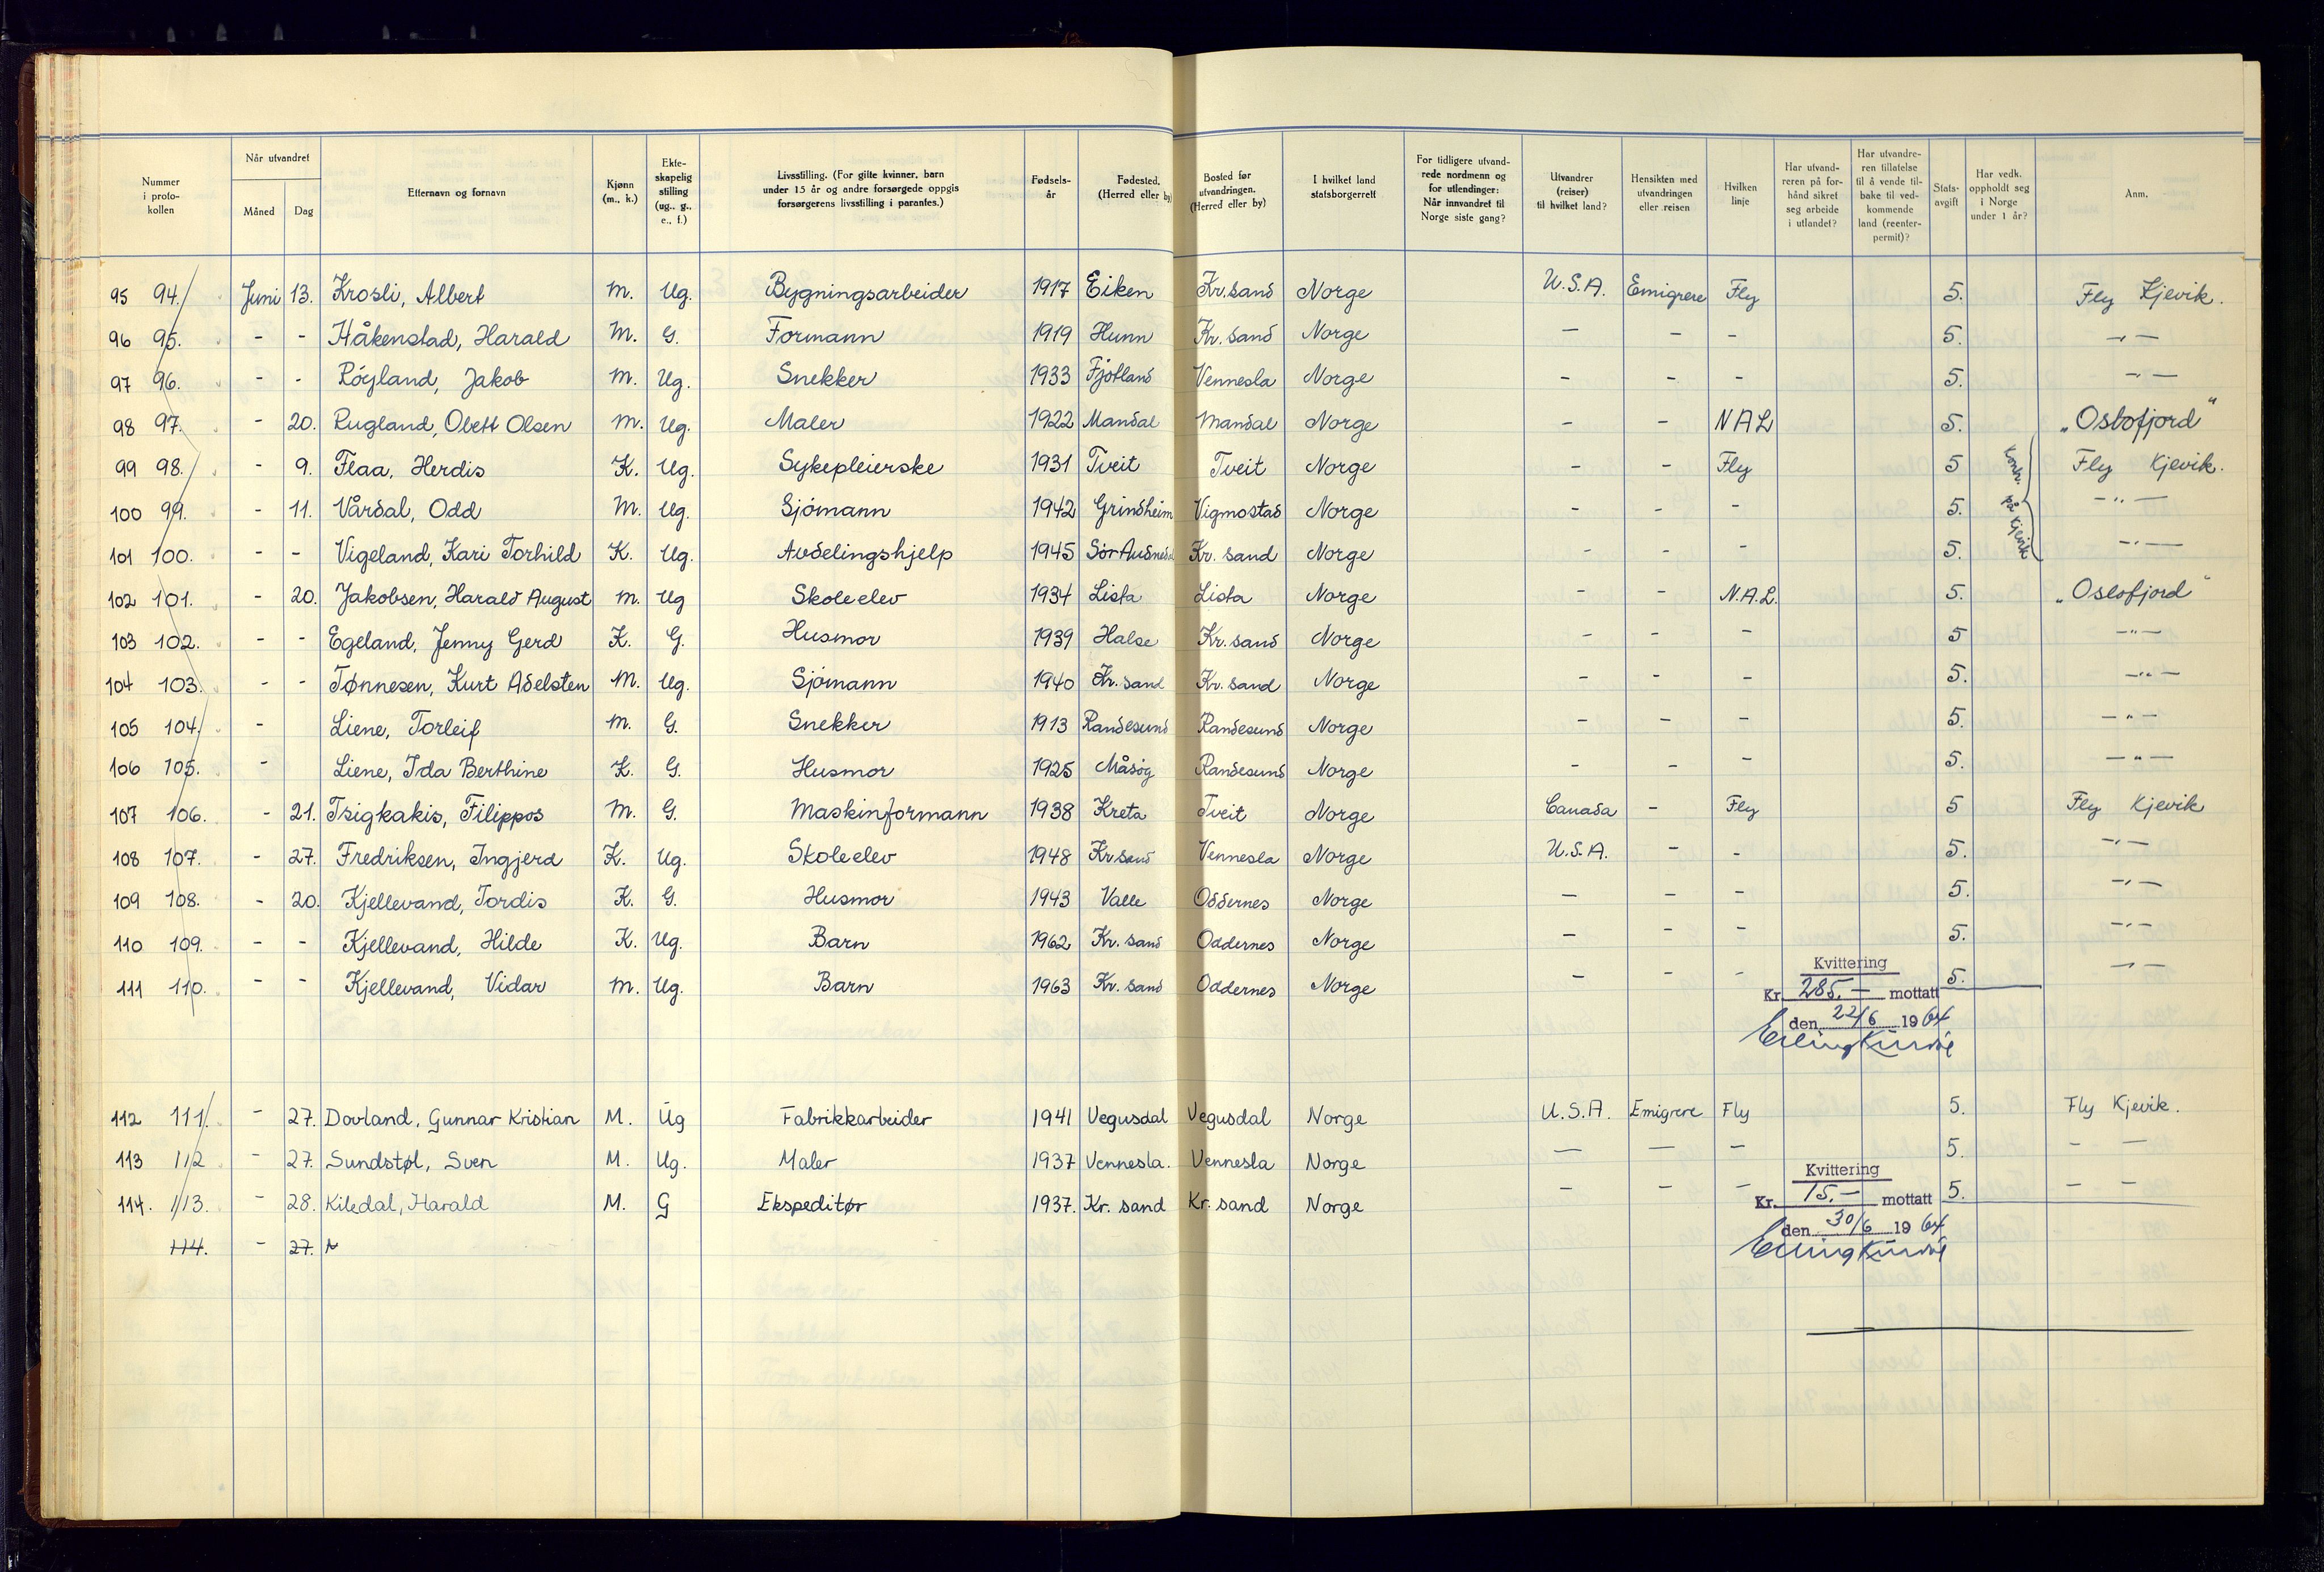 Nummer i protokollen | Når utvandret Måned | Dag | Etternavn og fornavn | Kjønn (m., k.) | Ekteskapelig stilling (ug., g., e., f.) | Livsstilling. (For gifte kvinner, barn under 15 år og andre forsørgede oppgis forsørgerens livsstilling i parantes.) | Fødselsår | Fødested. (Herred eller by) | Bosted før utvandringen. (Herred eller by) | I hvilket land statsborgerrett | For tidligere utvandrede nordmenn og for utlendinger: Når innvandret til Norge siste gang? | Utvandrer (reiser) til hvilket land? | Hensikten med utvandringen eller reisen | Hvilken linje | Har utvandreren på forhånd sikret seg arbeide i utlandet? | Har utvandreren tillatelse til å vende tilbake til vedkommende land (reenterpermit)? | Statsavgift | Har vedk. oppholdt seg i Norge under 1 år? | Anm.
95 94. Juni 13. Krosli, Albert M. Ug. Bygningsarbeider 1917 Eiken Kr.sand Norge U.S.A. Emigrere Fly 5. Fly Kjevik.
96 95. - - Håkenstad, Harald M. G. Formann 1919 Hunn Kr. sand Norge — - - 5. —"—
97 96. - - Röyland, Jakob M. Ug. Snekker 1933 Fjotland Vennesla Norge - - - 5. —"—
98 97. - 20. Rugland, Obett Olsen M. Ug. Maler 1922 Mandal Mandal Norge - - NAL 5. „Oslofjord"
99 98. - 9. Flaa, Herdis K. Ug. Sykepleierske 1931 Tveit Tveit Norge - - Fly 5 Fly Kjevik.
100 99. - 11. Vårdal, Odd M. Ug. Sjömann 1942 Grindheim Vigmostad Norge - - - 5. på Kjevik —"—
101 100. - - Vigeland, Kari Torhild K. Ug. Avdelingshjelp 1945 Sör Audnedal Kr. sand Norge - - - 5. —"—
102 101. - 20. Jakobsen, Harald August M. Ug Skoleelev 1934 Lista Lista Norge - - N.A.L. 5. „Oslofjord"
103 102. - - Egeland, Jenny Gerd K. G. Husmor 1939 Halse Kr.sand Norge - - - 5 —"—
104 103. - - Tønnesen, Kurt Adelsten M. Ug. Sjömann 1940 Kr. sand Kr. sand Norge - - - 5. —"—
105 104. - Liene, Torleif M. G. Snekker 1913 Randesund Randesund Norge - - - 5. —"—
106 105. - Liene, Ida Berthine K. G. Husmor 1925 Måsöy Randesund Norge - - - 5. —"—
107 106. - 21. Tsigkakis, Filippos M. G. Maskinformann 1938 Kreta Tveit Norge Canada - Fly 5 Fly Kjevik
108 107. - 27. Fredriksen, Ingjerd K. Ug. Skoleelev 1948 Kr sand Vennesla Norge U.S.A. - - 5. —"—
109 108. - 20. Kjellevand, Tordis K. G. Husmor 1943 Valle Oddernes Norge — - - 5. —"—
110 109. - - Kjellevand, Hilde K. Ug. Barn 1962 Kr. sand Oddernes Norge - - - 5. —"—
111 110. - - Kjellevand, Vidar M. Ug. Barn 1963 Kr. sand Oddernes Norge - - - 5. —"—
Kvittering
Kr. 285.— mottatt
den 22/6 1964
112 111. - 27. Dovland, Gunnar Kristian M. Ug Fabrikkarbeider 1941 Vegusdal Vegusdal Norge U.S.A. Emigrere Fly 5. Fly Kjevik.
113 112 - 27. Sundstøl, Sven M. Ug. Maler 1937 Vennesla. Vennesla Norge — — — 5. - —
114. 113. - 28. Kiledal, Harald M. G Ekspeditør 1937. Kr. sand Kr. sand Norge - — — 5. — —
114. - 27.
Kvittering
Kr. 15.— mottatt
den 30/6 1964